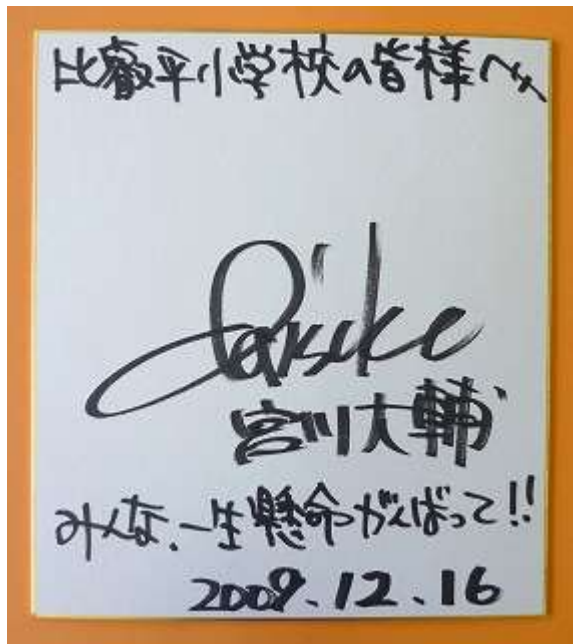 比叡平小学校の皆様へ
Daisuke
宮川大輔
みんな、一生懸命がんばって!!
2009.12.16